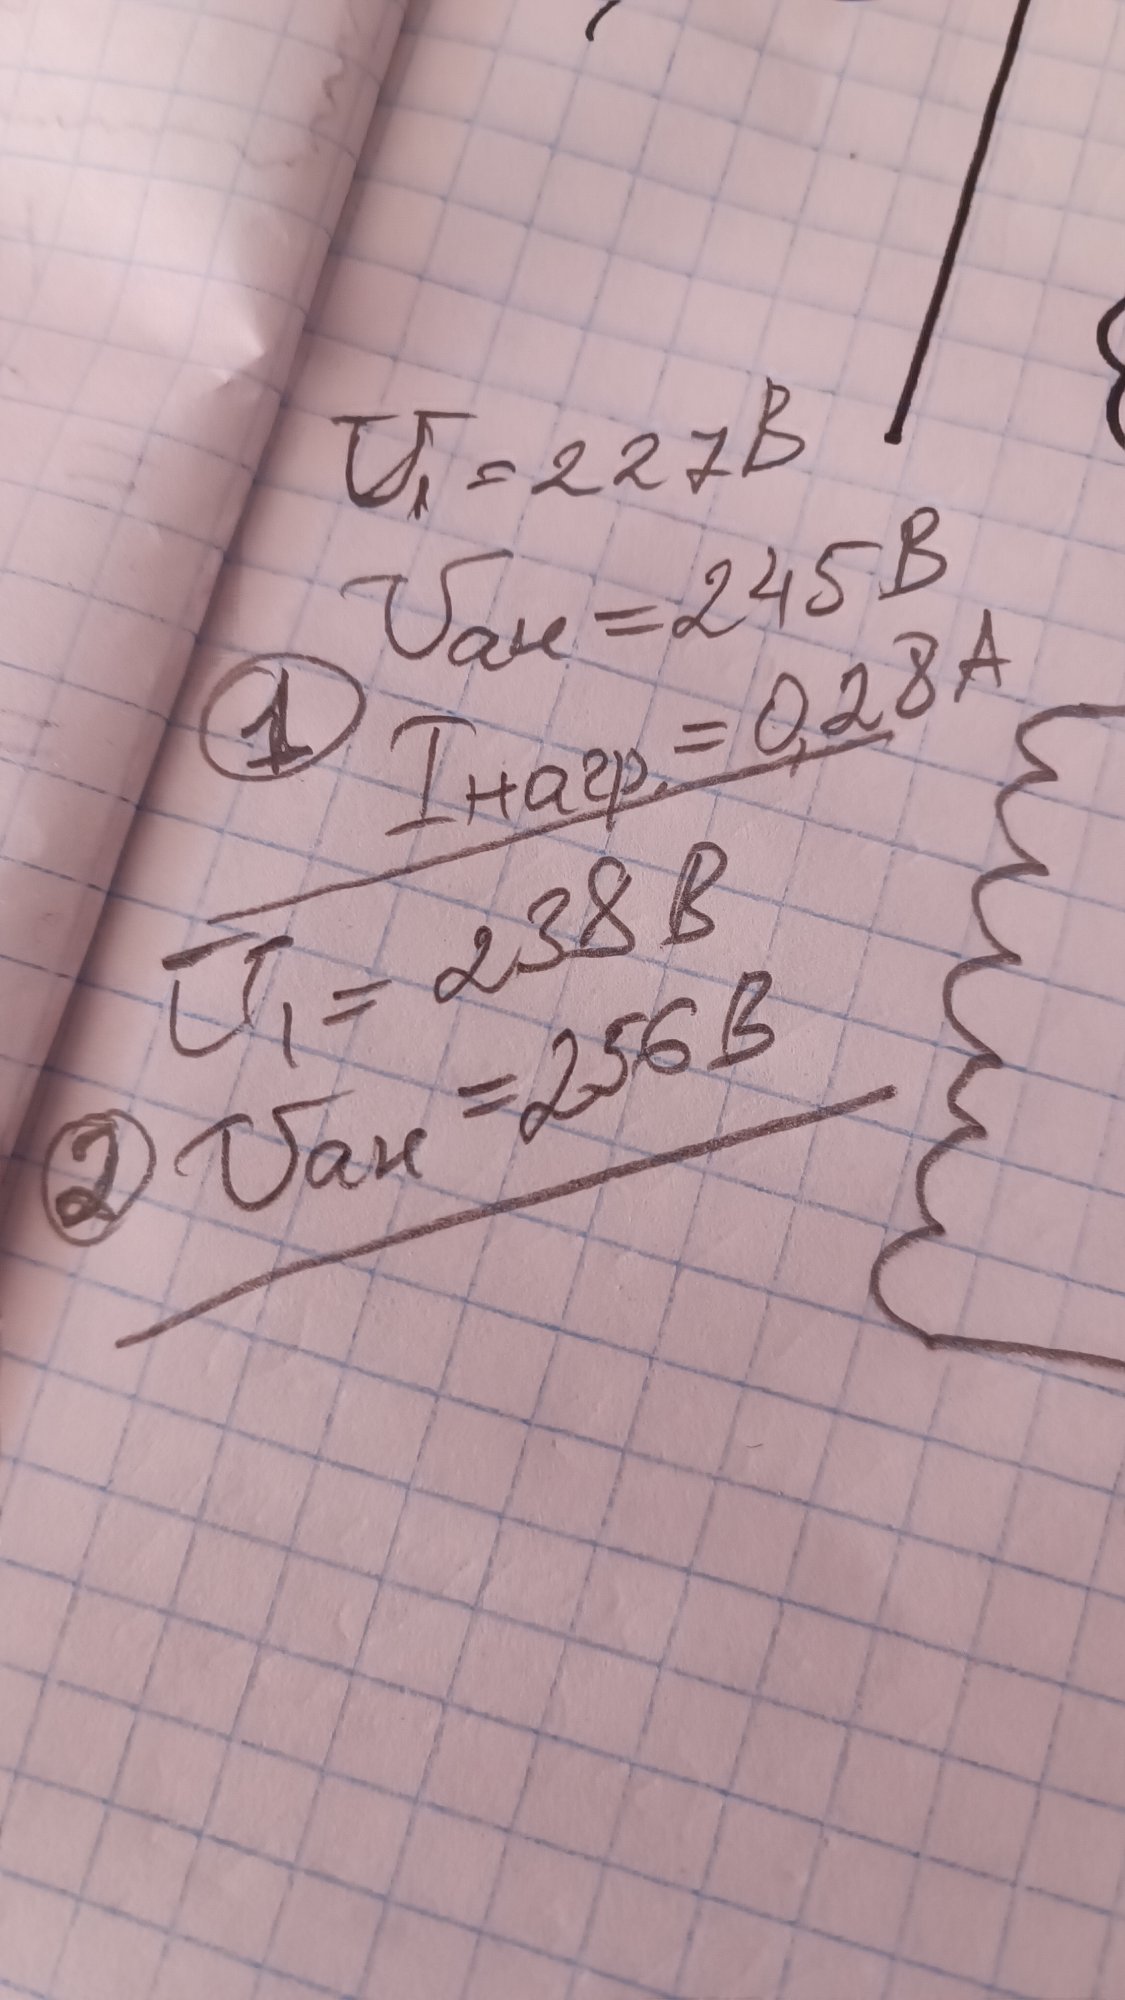 U₁ = 227 В
Uан = 245 В
① Iнагр. = 0,28 А
U₁ = 238 В
② Uан = 256 В